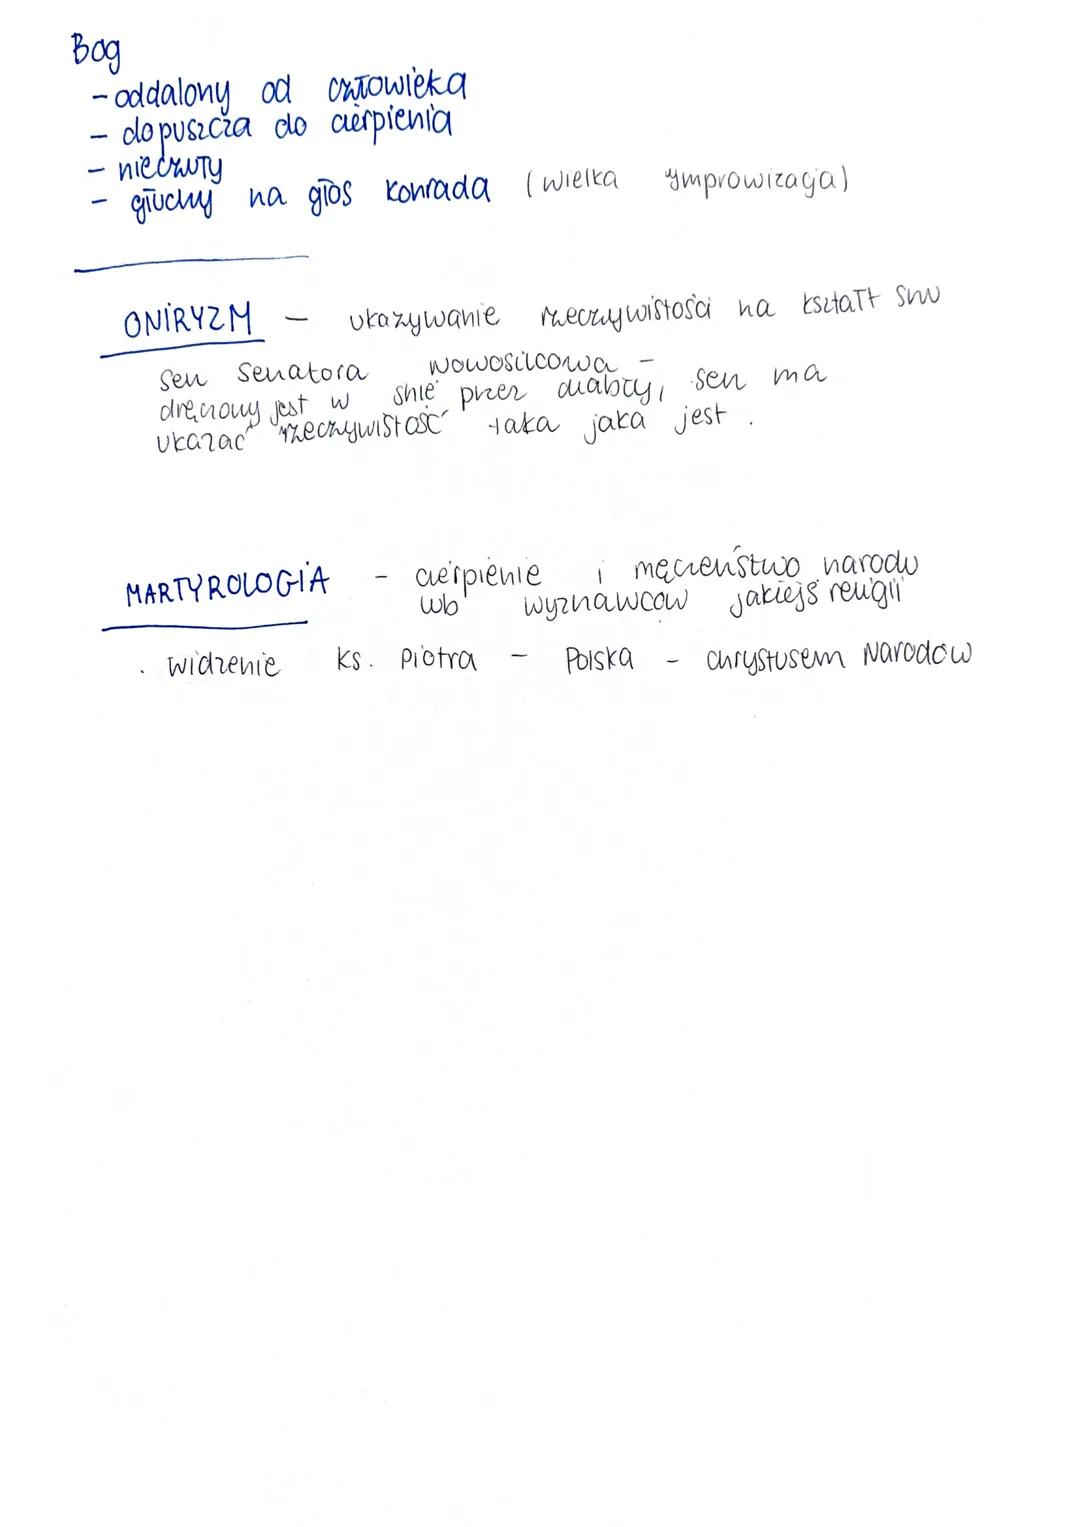 Bóg
- oddalony od człowieka
- dopuszcza do cierpienia
- nieczuły
- głuchy na głos Konrada (Wielka Improwizacja)
ONIRYZM - ukazywanie rzeczywistości na kształt snu
Sen Senatora Nowosilcowa -
dręczony jest w śnie przez diabły, sen ma
ukazać rzeczywistość taka jaka jest.
MARTYROLOGIA - cierpienie i męczeństwo narodu
lub wyznawców jakiejś religii
. Widzenie ks. Piotra - Polska - Chrystusem Narodów